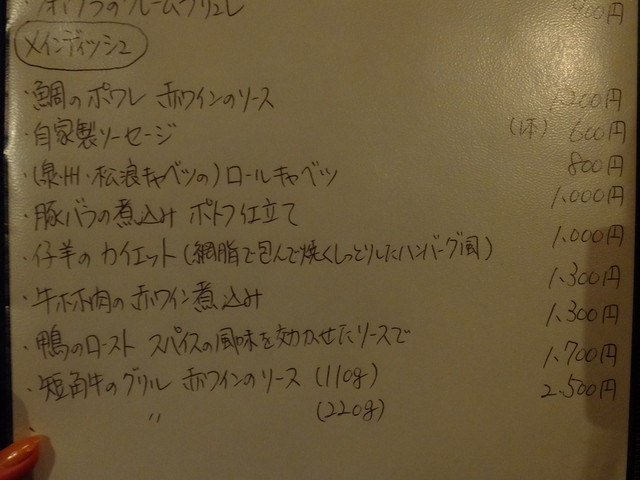 クレームブリュレ 900円
メインディッシュ
・鯛のポワレ 赤ワインのソース 1,200円
・自家製ソーセージ (1本) 600円
・(泉州・松浪キャベツの)ロールキャベツ 800円
・豚バラの煮込み ポトフ仕立て 1,000円
・仔羊の カイエット(網脂で包んで焼くしっとりしたハンバーグ風) 1,000円
・牛ホホ肉の赤ワイン煮込み 1,300円
・鴨のロースト スパイスの風味を効かせたソースで 1,300円
・短角牛のグリル 赤ワインのソース (110g) 1,700円
〃 (220g) 2,500円